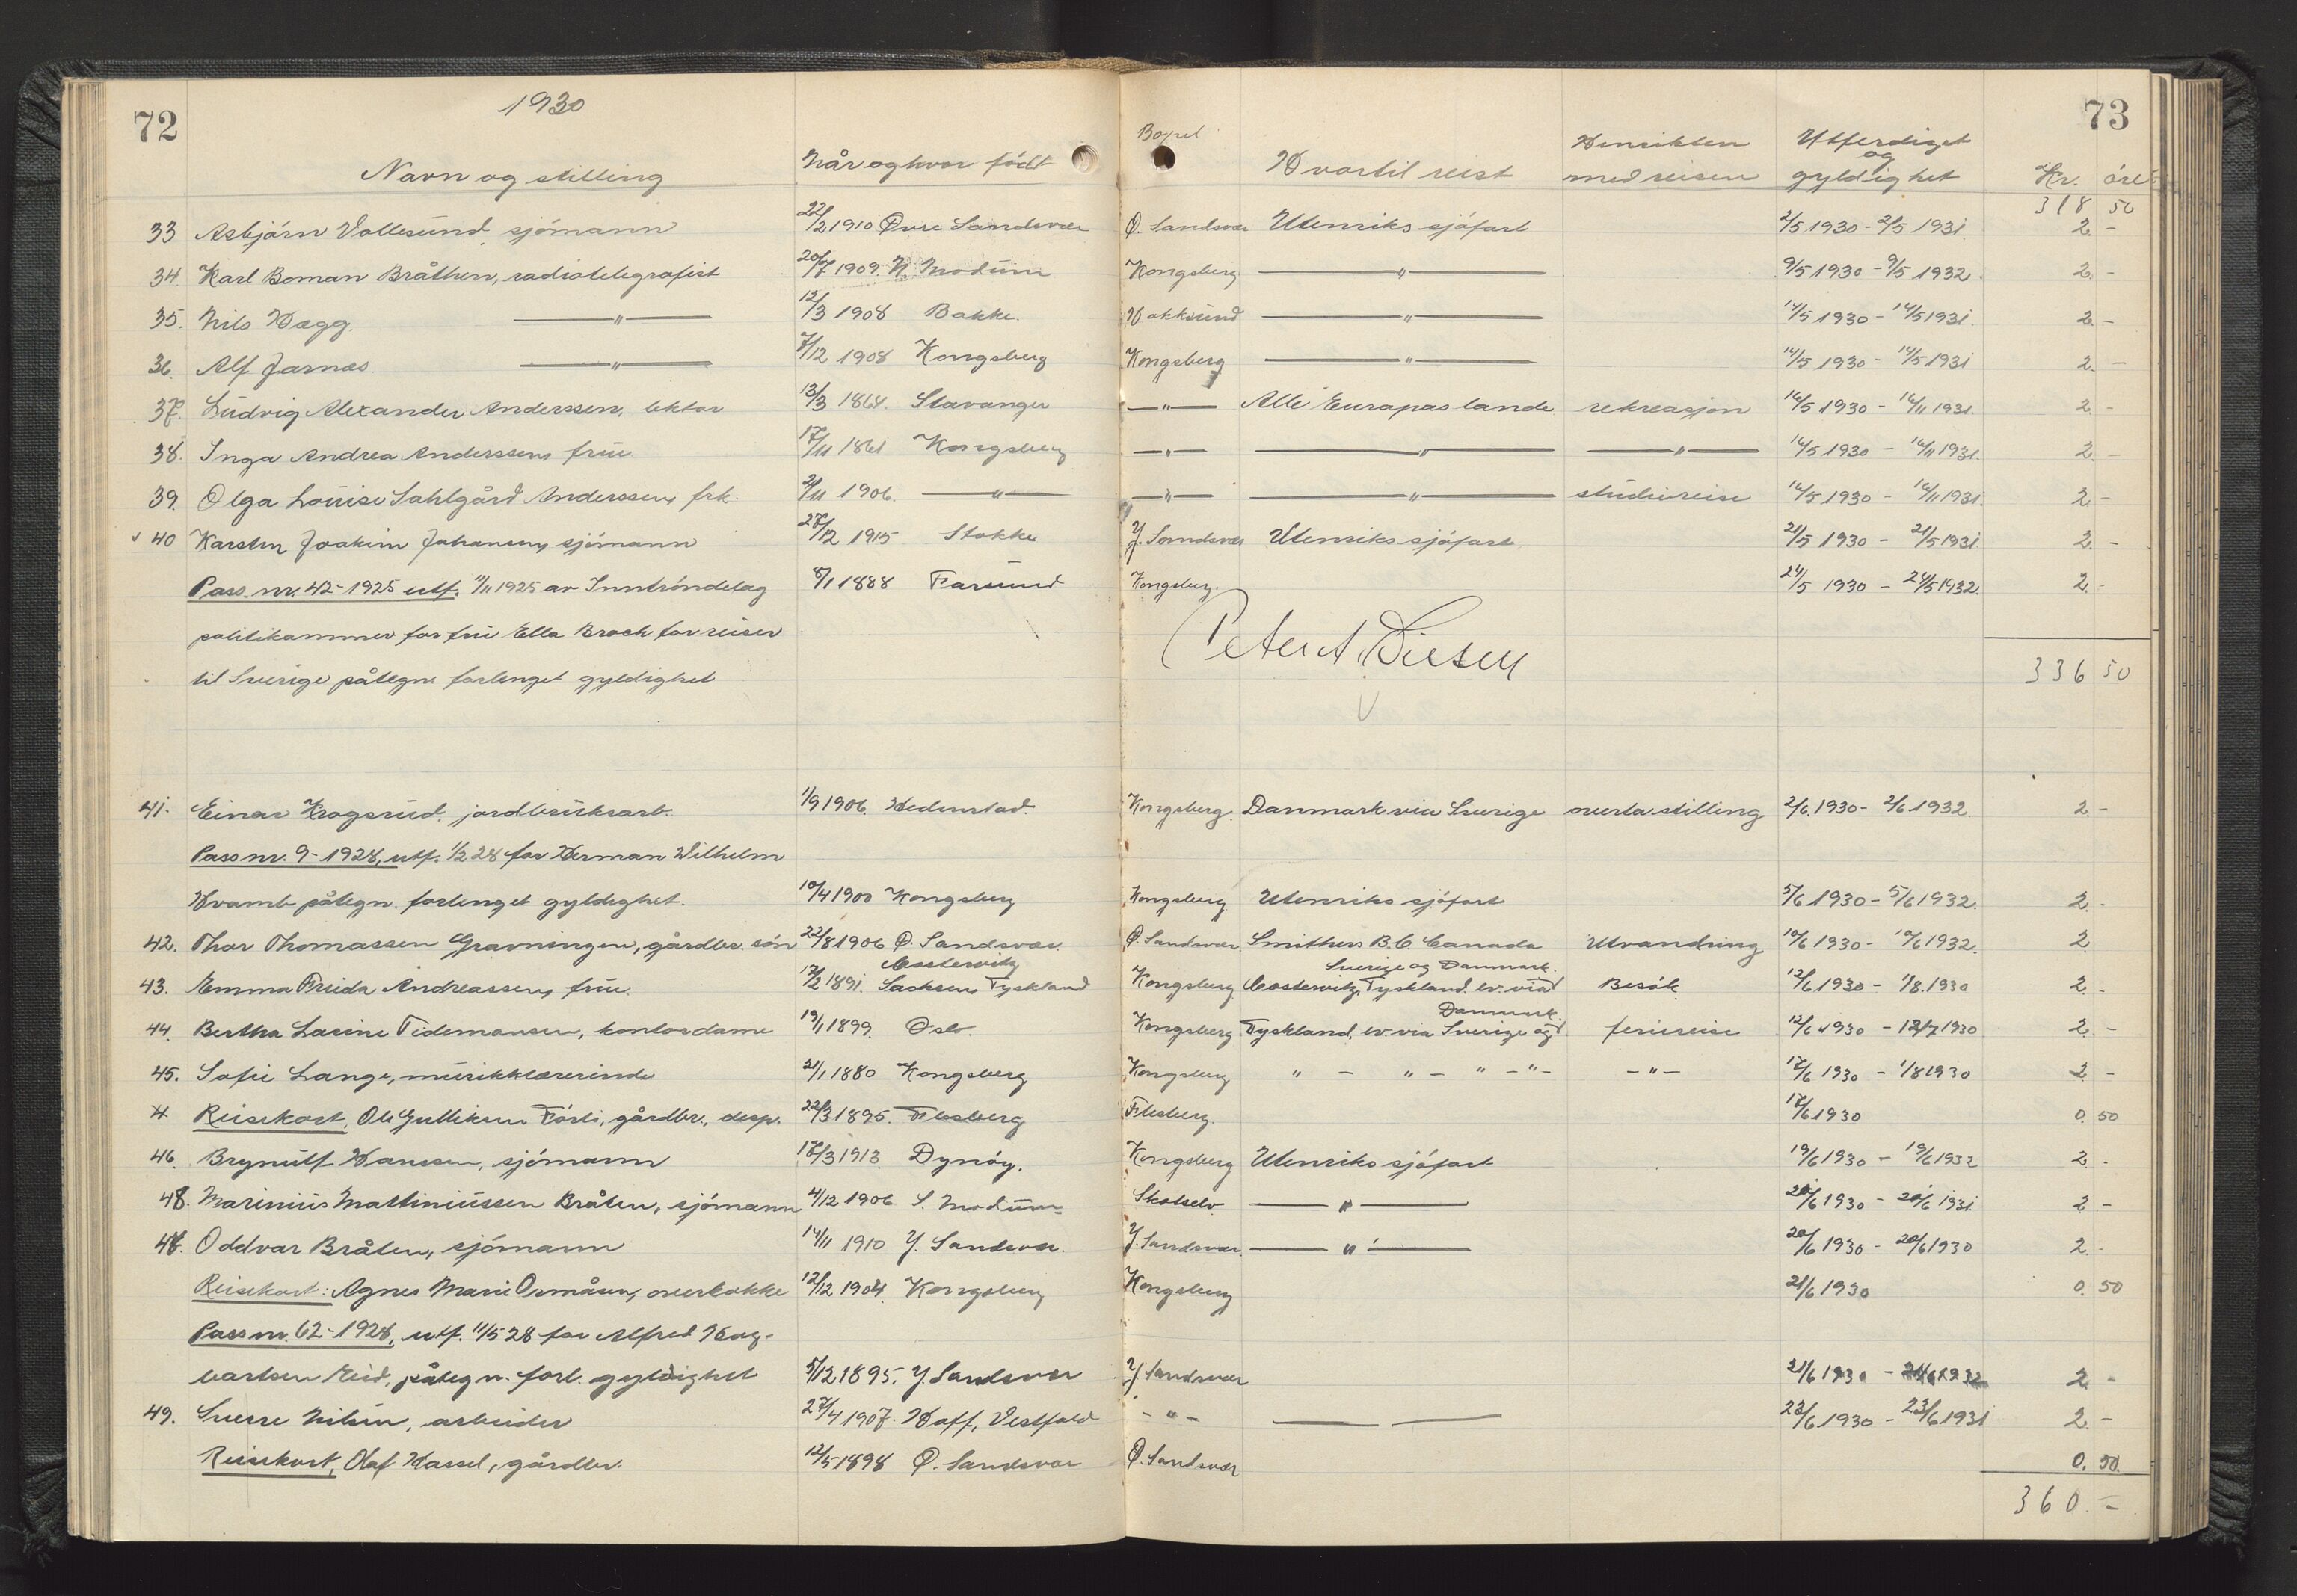 72 1930 73
Navn og stilling Når og hvor födt Bopel Hvortil reist Hensikten med reisen Utferdiget og gyldighet Kr. öre
318 50
33 Asbjörn Vollesund, sjömann 22/2 1910 Övre Sandsvær Ö. Sandsvær Utenriks sjöfart 2/5 1930 - 2/5 1931 2 -
34. Karl Boman Bråthen, radiotelegrafist 20/7 1909. N. Modum Kongsberg — " — 9/5 1930 - 9/5 1932. 2. -
35. Nils Hægg. — " — 12/3 1908 Bakke. Hokksund — " — 14/5 1930 - 14/5 1931. 2. -
36. Alf Jarnæs — " — 7/12 1908 Kongsberg Kongsberg — " — 14/5 1930 - 14/5 1931 2. -
37. Ludvig Alexander Anderssen, lektor 13/3 1864. Stavanger — " — Alle Europas lande rekreasjon 16/5 1930 - 16/11 1931. 2. -
38. Inga Andrea Anderssen, frue 17/11 1861 Kongsberg — " — — " — — " — 16/5 1930 - 16/11 1931. 2. -
39. Olga Louise Sahlgård Anderssen, frk. 2/11 1906. — " — — " — — " — studiereise 16/5 1930 - 16/11 1931. 2 -
40 Karsten Joakim Johansen, sjömann 27/12 1915 Stokke Y. Sandsvær Utenriks sjöfart 21/5 1930 - 21/5 1931. 2. -
Pass. nr. 42-1925 utf. 11/11 1925 av Inntröndelag 8/1 1888 Farsund Kongsberg. 24/5 1930 - 24/5 1932. 2. -
politikammer for frue Ella Broch for reiser
til Sverige påtegn. forlenget gyldighet 336 50
41. Einar Krogsrud, jordbruksarb. 1/9 1906. Hedenstad. Kongsberg. Danmark via Sverige overta stilling 2/6. 1930 - 2/6 1932 2 -
Pass nr. 9-1928, utf. 1/2 28 for Herman Wilhelm
Hvamb påtegn. forlenget gyldighet. 10/4 1900 Kongsberg Kongsberg Utenriks sjöfart 5/6 1930 - 5/6 1932. 2. -
42. Thor Thomassen Gravningen, gårdbr. sön 22/8 1906 Ö. Sandsvær. Ö. Sandsvær Smithers B.C. Canada Utvandring 10/6 1930 - 10/6 1932. 2
43. Emma Frieda Andreassen, frue. 17/2 1891. Costewitz Sachsen Tyskland Kongsberg Costewitz, Tyskland. ev. via Sverige og Danmark. Besök 12/6 1930 - 1/8. 1930 2. -
44. Bertha Lasine Tidemansen, kontordame 19/1 1899. Oslo. Kongsberg Tyskland, ev. via Sverige og Danmark feriereise 12/6 1930 - 12/7 1930 2. -
45. Sofie Lange, musikklærerinde 21/1 1880 Kongsberg Kongsberg " - " - " - " - - " - 17/6 1930 - 1/8 1930 2 -
4 Reisekort, Ole Gulliksen Förli, gårdbr., desp. 22/3 1895. Flesberg Flesberg. 17/6 1930 0. 50
46. Brynulf Hanssen, sjömann 18/3 1913 Dynöy. Kongsberg Utenriks sjöfart 19/6 1930 - 19/6 1932 2 -
48. Marinius Mattiniussen Bråten, sjömann 4/12 1906 S. Modum Skotselv. — " — 20/6 1930 - 20/6 1931. 2 -
48. Oddvar Bråten, sjömann 14/11 1910 Y. Sandsvær. Y. Sandsvær. — " — 20/6 1930 - 20/6 1930 2. -
Reisekort: Agnes Marie Ormåsen, overkokke 12/12 1904. Kongsberg Kongsberg 21/6 1930 0. 50
Pass nr. 62-1928, utf. 11/5 28 for Alfred Hag-
bartsen Eid, påtegn. forl. gyldighet 5/12 1895. Y. Sandsvær Y. Sandsvær 21/6 1930 - 21/6 1932 2 -
49. Sverre Nilsen, arbeider 27/4 1907. Hoff, Vestfold - " - — — 23/6 1930 - 23/6 1931 2. -
Reisekort, Olaf Hassel, gårdbr. 12/5 1898 Ö. Sandsvær Ö. Sandsvær 0. 50.
360. -